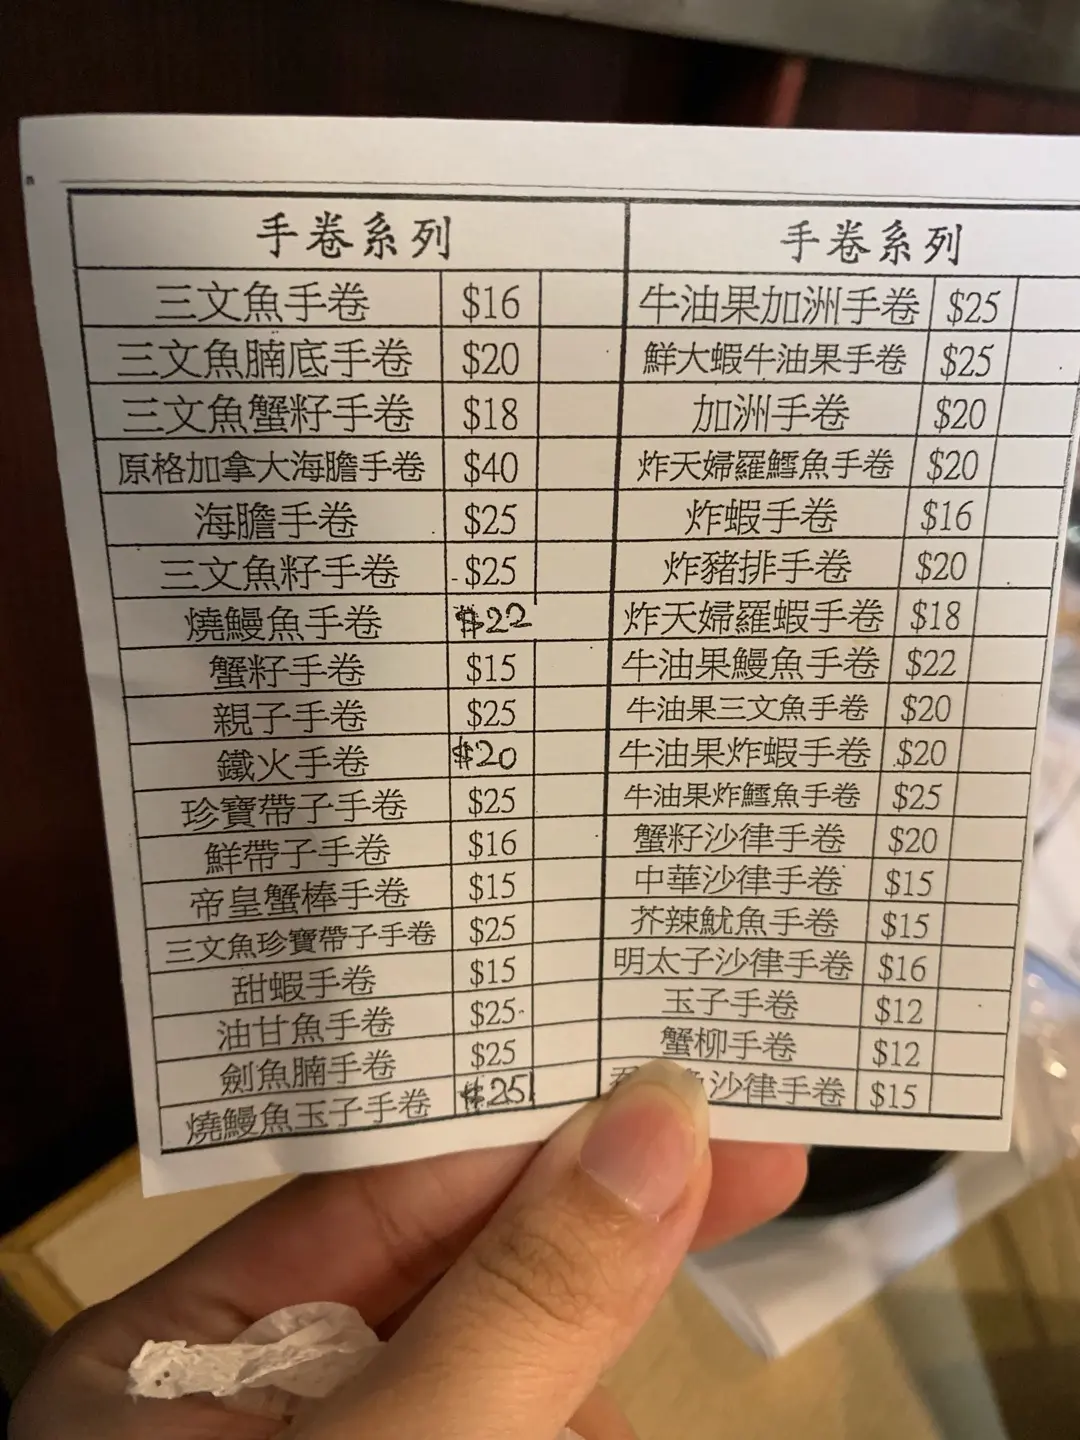 手卷系列
三文魚手卷 $16
三文魚腩底手卷 $20
三文魚蟹籽手卷 $18
原格加拿大海膽手卷 $40
海膽手卷 $25
三文魚籽手卷 $25
燒鰻魚手卷 $22
蟹籽手卷 $15
親子手卷 $25
鐵火手卷 $20
珍寶帶子手卷 $25
鮮帶子手卷 $16
帝皇蟹棒手卷 $15
三文魚珍寶帶子手卷 $25
甜蝦手卷 $15
油甘魚手卷 $25
劍魚腩手卷 $25
燒鰻魚玉子手卷 $25
手卷系列
牛油果加洲手卷 $25
鮮大蝦牛油果手卷 $25
加洲手卷 $20
炸天婦羅鱈魚手卷 $20
炸蝦手卷 $16
炸豬排手卷 $20
炸天婦羅蝦手卷 $18
牛油果鰻魚手卷 $22
牛油果三文魚手卷 $20
牛油果炸蝦手卷 $20
牛油果炸鱈魚手卷 $25
蟹籽沙律手卷 $20
中華沙律手卷 $15
芥辣魷魚手卷 $15
明太子沙律手卷 $16
玉子手卷 $12
蟹柳手卷 $12
沙律手卷 $15